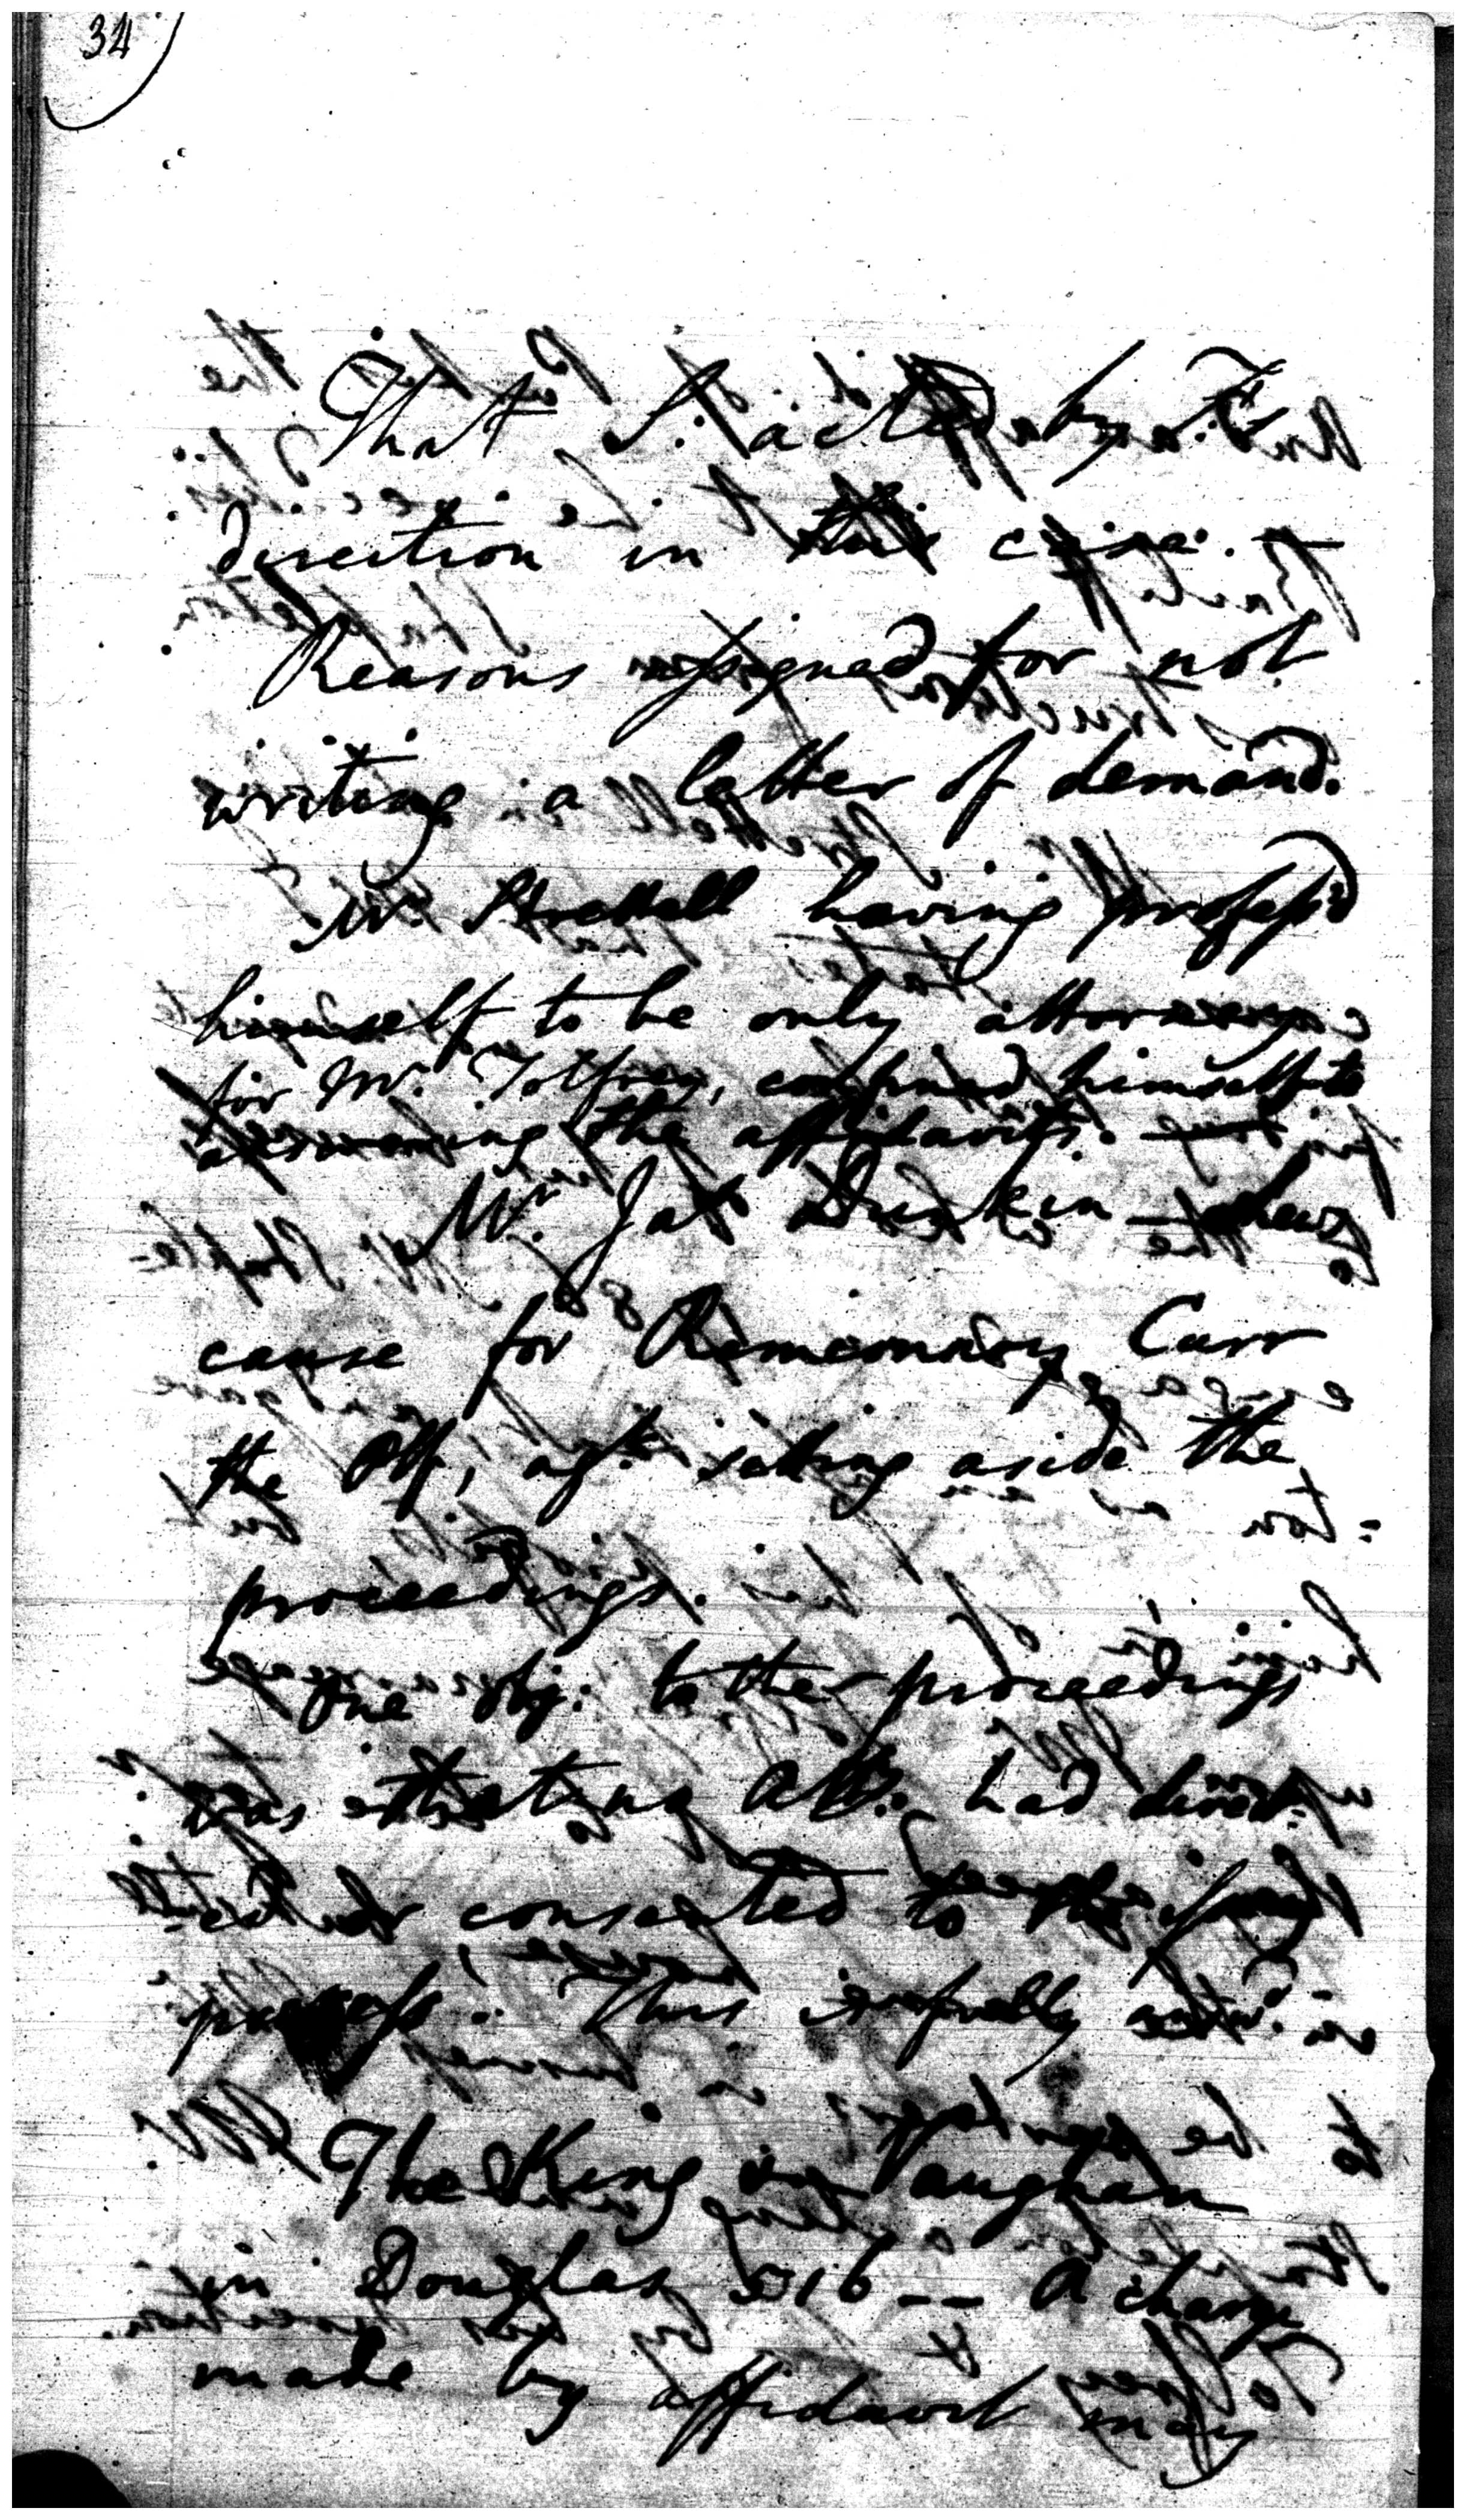 34
That S. acted by T.'s
direction in this case. —
Reasons assigned for not
writing a letter of demand.
Mr. Strettell having profess'd
himself to be only attorney
for Mr. Tolfrey, confined himself to
answering the affidavits.
Mr. Jas Dunkin shews
cause for Ramcondoy Curr
the Plf, agt. setting aside the
proceedings.
One obj: to the proceedings
was that no Atty. had direct=
ed or consented to the
process. This
The King vs. Vaughan
in Douglas 516 — A charge
made by affidavit may